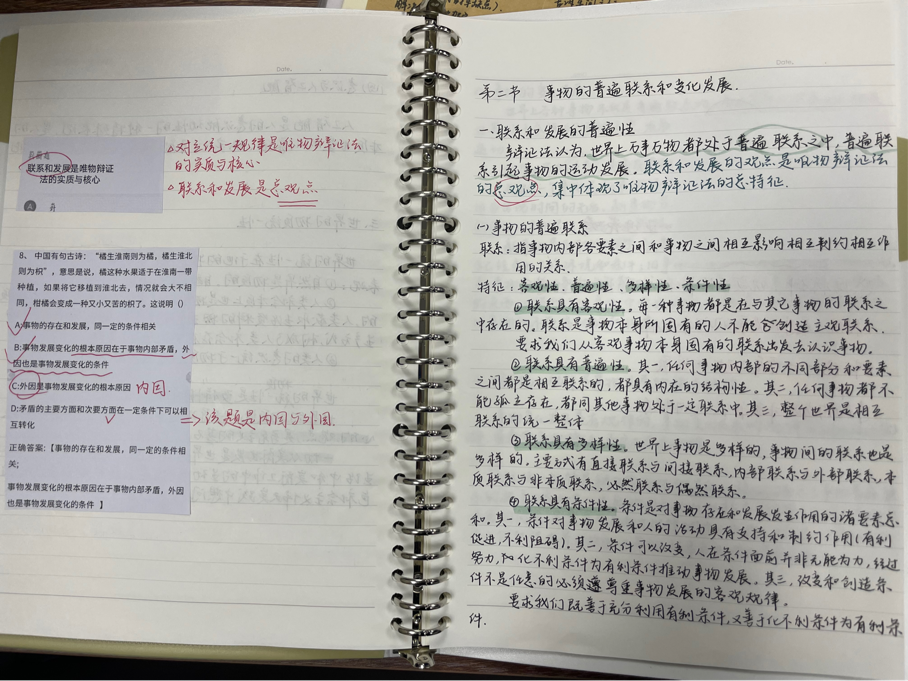 Date.
联系和发展是唯物辩证
法的实质与核心
A
△对立统一规律是唯物辩证法
的实质与核心
△联系和发展是总观点
8、中国有句古诗:“橘生淮南则为橘,橘生淮北
则为枳”,意思是说,橘这种水果适于在淮南一带
种植,如果将它移植到淮北去,情况就会大不相
同,柑橘会变成一种又小又苦的枳了。这说明()
A:事物的存在和发展,同一定的条件相关
B:事物发展变化的根本原因在于事物内部矛盾,外
因也是事物发展变化的条件
C:外因是事物发展变化的根本原因 内因.
D:矛盾的主要方面和次要方面在一定条件下可以相
互转化
⇒该题是内因与外因.
正确答案:【事物的存在和发展,同一定的条件相
关;
事物发展变化的根本原因在于事物内部矛盾,外因
也是事物发展变化的条件 】
Date.
第二节 事物的普遍联系和变化发展.
一.联系和发展的普遍性
辩证法认为,世界上万事万物都处于普遍联系之中,普遍联
系引起事物的运动发展。联系和发展的观点是唯物辩证法
的总观点,集中体现了唯物辩证法的总特征.
㈠事物的普遍联系
联系:指事物内部各要素之间和事物之间相互影响相互制约相互作
用的关系.
特征:客观性、普遍性、多样性、条件性
①联系具有客观性。每一种事物都是在与其它事物的联系之
中存在的,联系是事物本身所固有的人不能否创造主观联系.
要求我们从客观事物本身固有的联系出发去认识事物。
②联系具有普遍性。其一,任何事物内部的不同部分和要素
之间都是相互联系的,都具有内在的结构性。其二,任何事物都不
能孤立存在,都同其他事物处于一定联系中,其三,整个世界是相互
联系的统一整体
③联系具有多样性。世界上事物是多样的,事物间的联系也是
多样的,主要方式有直接联系与间接联系、内部联系与外部联系、本
质联系与非本质联系,必然联系与偶然联系。
④联系具有条件性。条件是对事物存在和发展发生作用的诸要素总
和。其一,条件对事物发展和人的活动具有支持和制约作用(有利
促进,不利阻碍)。其二,条件可以改变,人在条件面前并非无能为力,经过
努力,化不利条件为有利条件推动事物发展。其三,改变和创造条
件不是任意的必须遵尊重事物发展的客观规律。
要求我们既善于充分利用有利条件,又善于化不利条件为有利条
件.